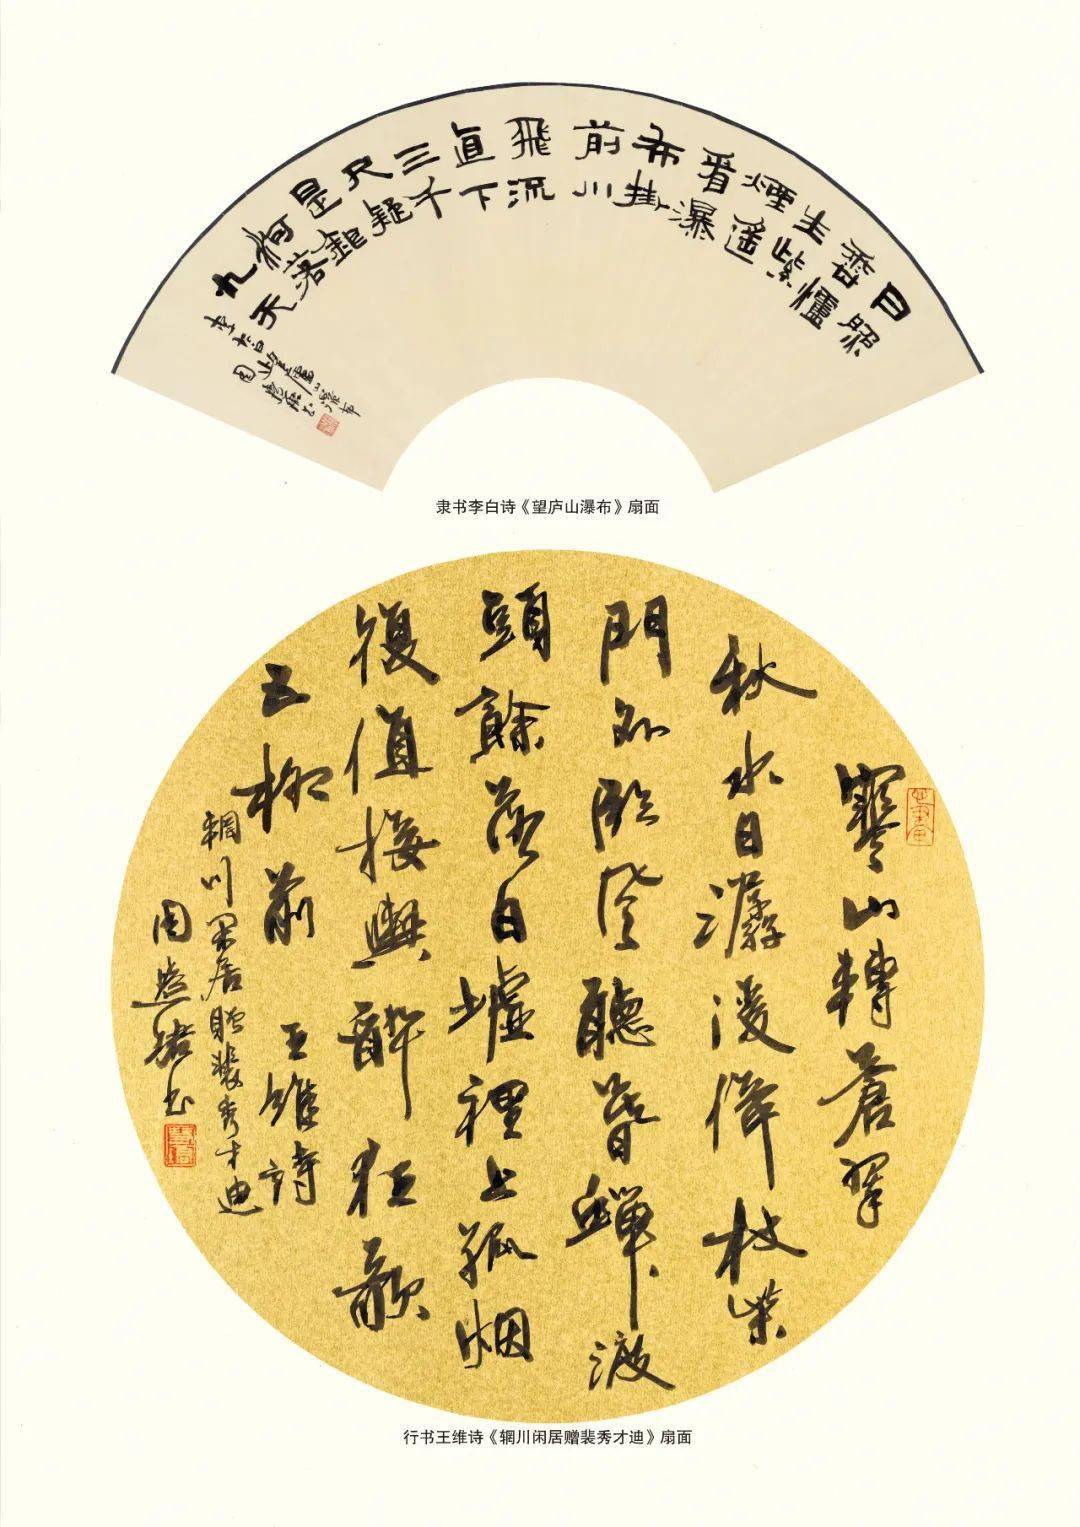 日照
香爐
生紫
煙遙
看瀑
布掛
前川
飛流
直下
三千
尺疑
是銀
河落
九天
李太白望廬山瀑布
周慧珺书
隶书李白诗《望庐山瀑布》扇面
寒山轉蒼翠
秋水日潺湲倚杖柴
門外臨風聽暮蟬渡
頭餘落日墟裡上孤烟
復值接輿醉狂歌
五柳前 王維詩
輞川閑居贈裴秀才迪
周慧珺书
行书王维诗《辋川闲居赠裴秀才迪》扇面